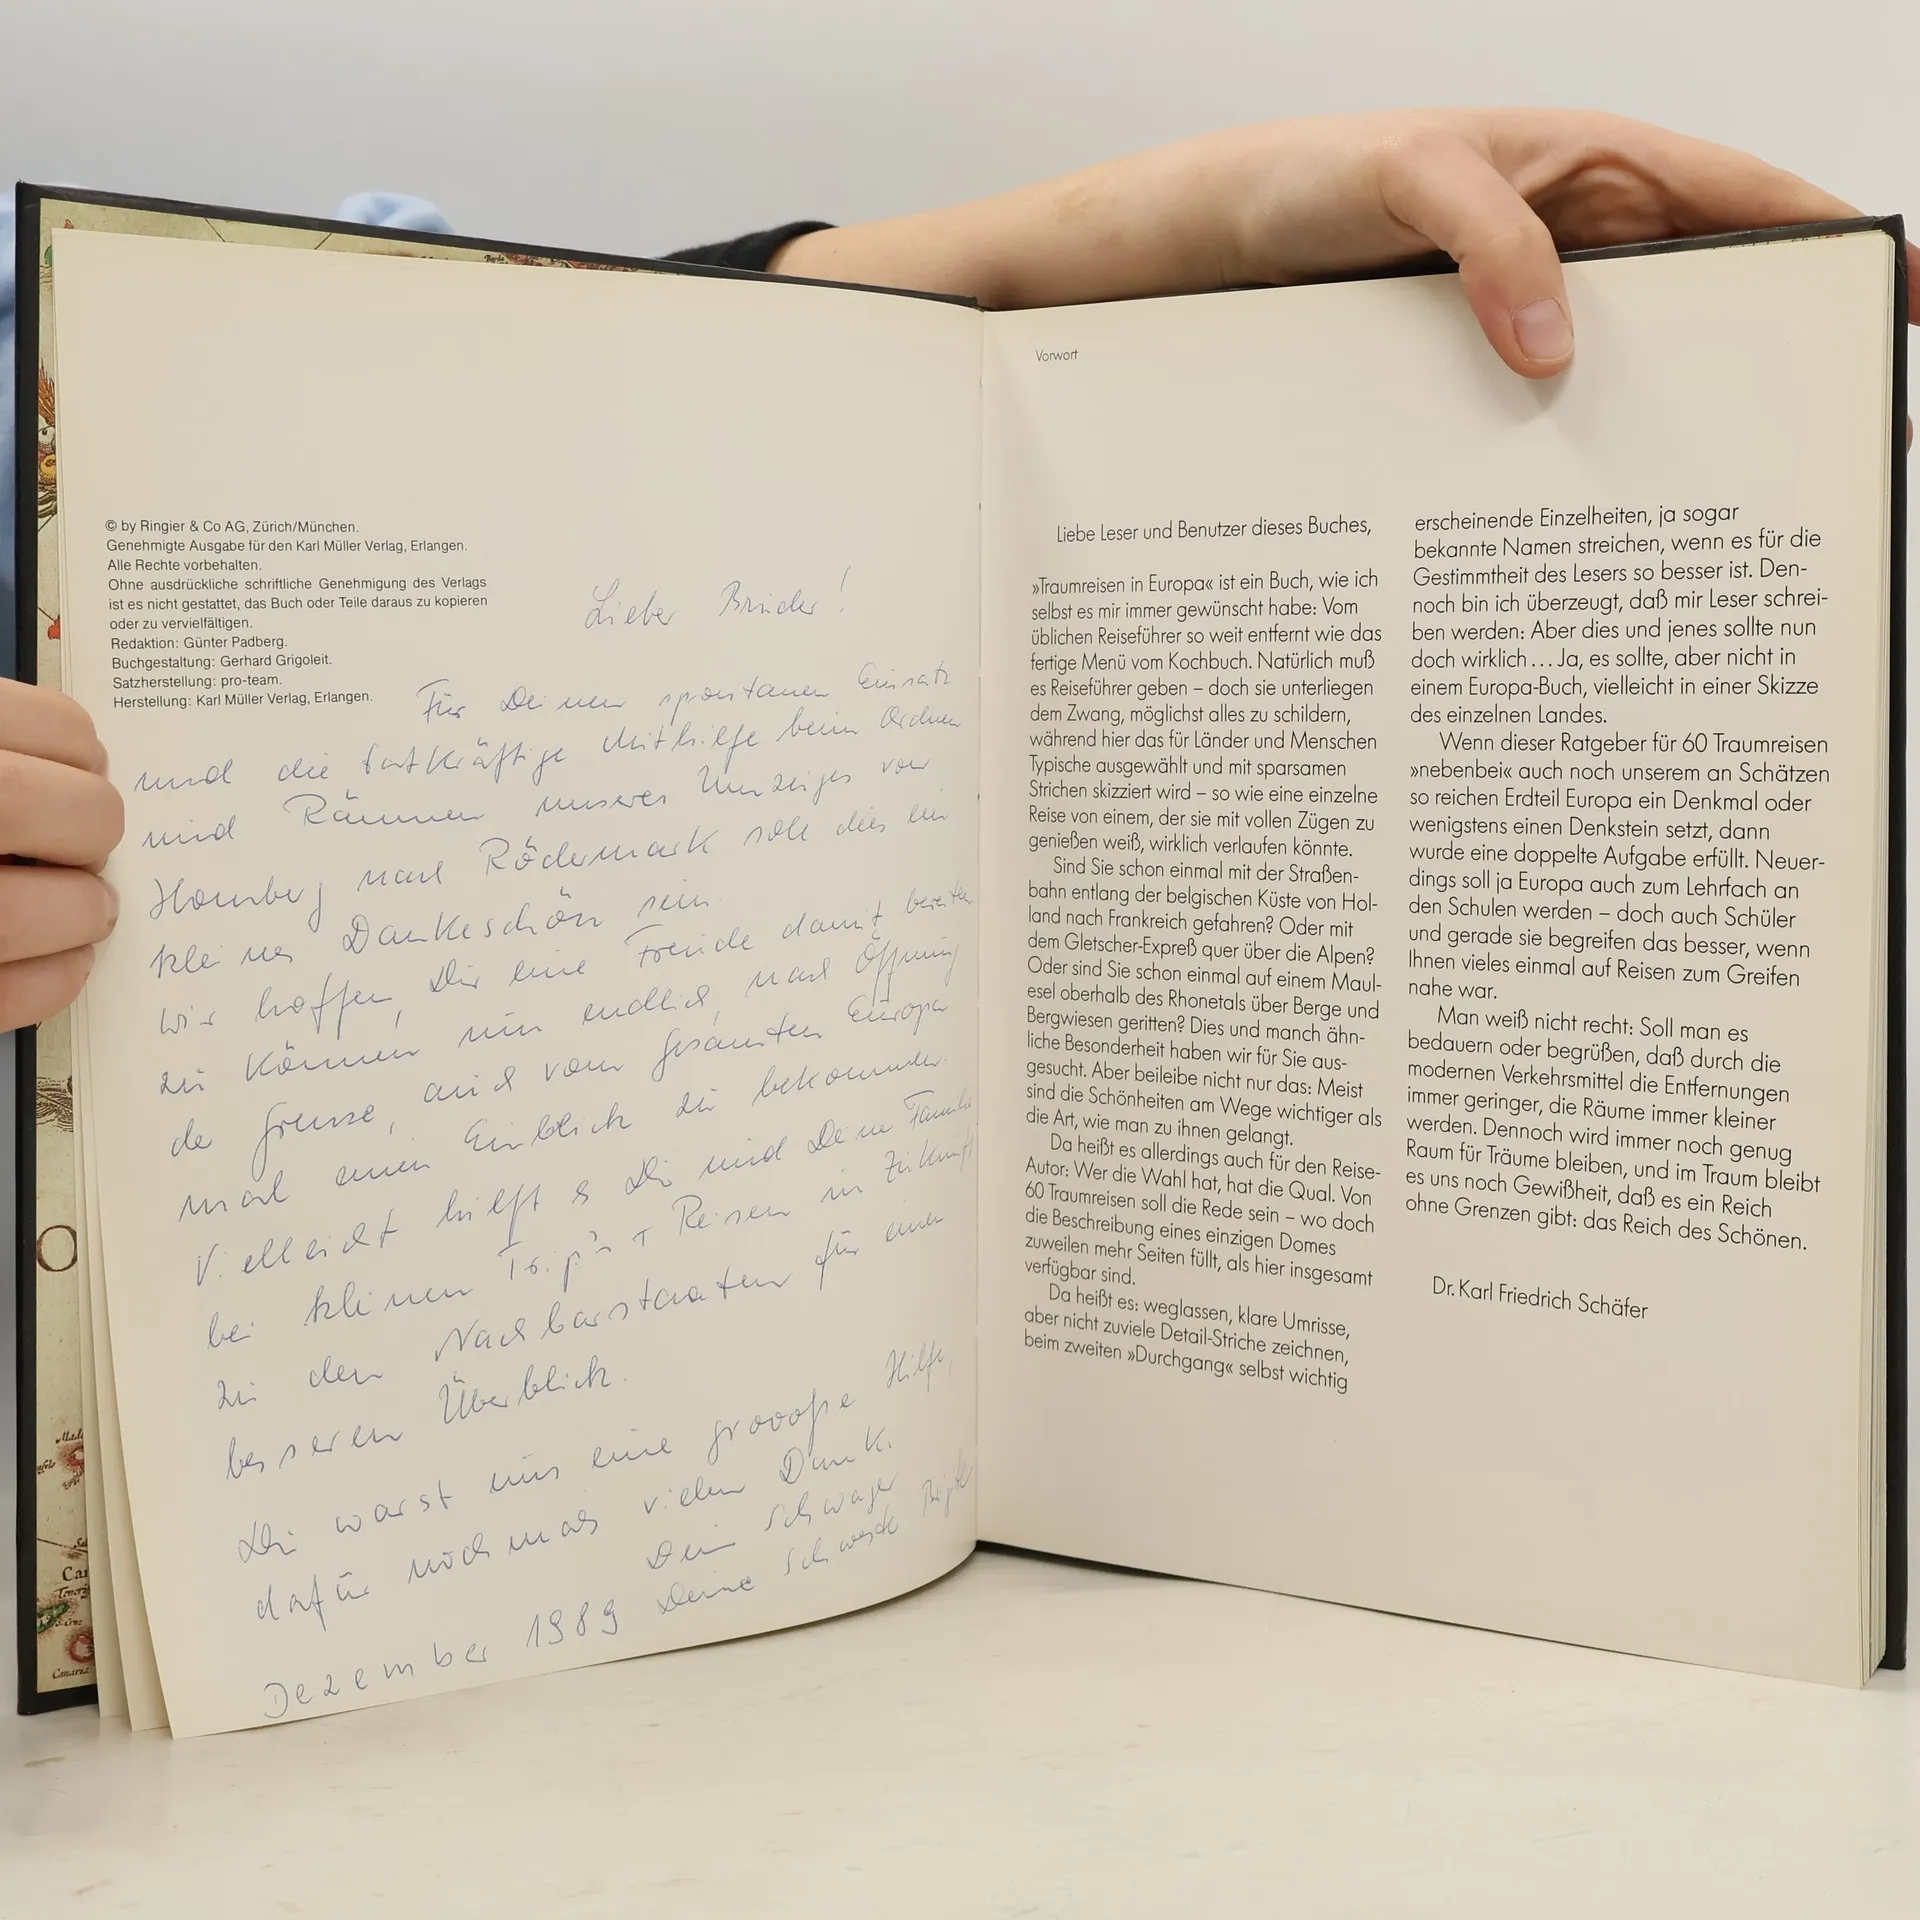 © by Ringier & Co AG, Zürich/München.
Genehmigte Ausgabe für den Karl Müller Verlag, Erlangen.
Alle Rechte vorbehalten.
Ohne ausdrückliche schriftliche Genehmigung des Verlags
ist es nicht gestattet, das Buch oder Teile daraus zu kopieren
oder zu vervielfältigen.
Redaktion: Günter Padberg.
Buchgestaltung: Gerhard Grigoleit.
Satzherstellung: pro-team.
Herstellung: Karl Müller Verlag, Erlangen.
Lieber Bruder!
Für Deinen spontanen Einsatz
und die tatkräftige Mithilfe beim Ordnen
und Räumen unseres Umzuges von
Homberg nach Rödermark soll dies ein
kleines Dankeschön sein.
Wir hoffen, Dir eine Freude damit bereiten
zu können, nun endlich, nach Öffnung
der Grenze, auch vom gesamten Europa
mal einen Einblick zu bekommen.
Vielleicht hilft es Dir und Deiner Familie
bei kleinen Trip's + Reisen in Zukunft
zu den Nachbarstaaten für einen
besseren Überblick.
Du warst uns eine groooße Hilfe,
dafür nochmals vielen Dank.
Dein Schwager
Deine Schwester
Dezember 1989
Vorwort
Liebe Leser und Benutzer dieses Buches,
»Traumreisen in Europa« ist ein Buch, wie ich
selbst es mir immer gewünscht habe: Vom
üblichen Reiseführer so weit entfernt wie das
fertige Menü vom Kochbuch. Natürlich muß
es Reiseführer geben – doch sie unterliegen
dem Zwang, möglichst alles zu schildern,
während hier das für Länder und Menschen
Typische ausgewählt und mit sparsamen
Strichen skizziert wird – so wie eine einzelne
Reise von einem, der sie mit vollen Zügen zu
genießen weiß, wirklich verlaufen könnte.
Sind Sie schon einmal mit der Straßen-
bahn entlang der belgischen Küste von Hol-
land nach Frankreich gefahren? Oder mit
dem Gletscher-Expreß quer über die Alpen?
Oder sind Sie schon einmal auf einem Maul-
esel oberhalb des Rhonetals über Berge und
Bergwiesen geritten? Dies und manch ähn-
liche Besonderheit haben wir für Sie aus-
gesucht. Aber beileibe nicht nur das: Meist
sind die Schönheiten am Wege wichtiger als
die Art, wie man zu ihnen gelangt.
Da heißt es allerdings auch für den Reise-
Autor: Wer die Wahl hat, hat die Qual. Von
60 Traumreisen soll die Rede sein – wo doch
die Beschreibung eines einzigen Domes
zuweilen mehr Seiten füllt, als hier insgesamt
verfügbar sind.
Da heißt es: weglassen, klare Umrisse,
aber nicht zuviele Detail-Striche zeichnen,
beim zweiten »Durchgang« selbst wichtig
erscheinende Einzelheiten, ja sogar
bekannte Namen streichen, wenn es für die
Gestimmtheit des Lesers so besser ist. Den-
noch bin ich überzeugt, daß mir Leser schrei-
ben werden: Aber dies und jenes sollte nun
doch wirklich ... Ja, es sollte, aber nicht in
einem Europa-Buch, vielleicht in einer Skizze
des einzelnen Landes.
Wenn dieser Ratgeber für 60 Traumreisen
»nebenbei« auch noch unserem an Schätzen
so reichen Erdteil Europa ein Denkmal oder
wenigstens einen Denkstein setzt, dann
wurde eine doppelte Aufgabe erfüllt. Neuer-
dings soll ja Europa auch zum Lehrfach an
den Schulen werden – doch auch Schüler
und gerade sie begreifen das besser, wenn
Ihnen vieles einmal auf Reisen zum Greifen
nahe war.
Man weiß nicht recht: Soll man es
bedauern oder begrüßen, daß durch die
modernen Verkehrsmittel die Entfernungen
immer geringer, die Räume immer kleiner
werden. Dennoch wird immer noch genug
Raum für Träume bleiben, und im Traum bleibt
es uns noch Gewißheit, daß es ein Reich
ohne Grenzen gibt: das Reich des Schönen.
Dr. Karl Friedrich Schäfer